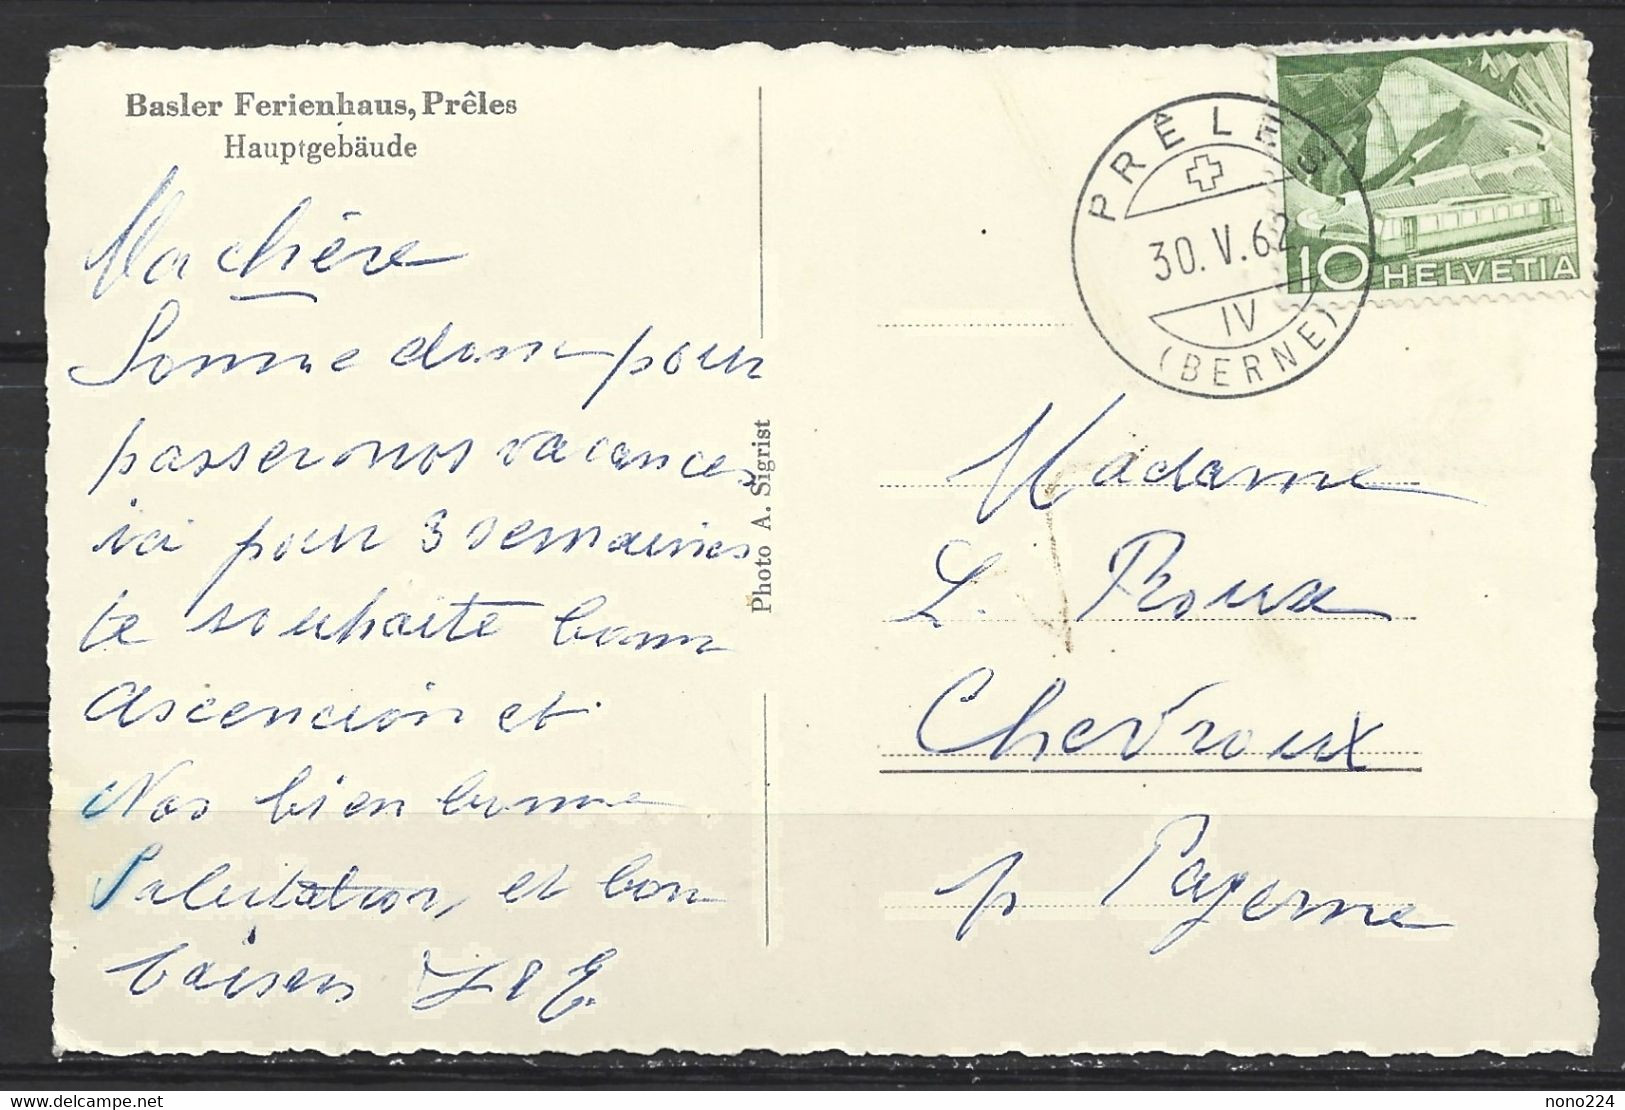 Basler Ferienhaus, Prêles
Hauptgebäude
Ma chère
Somme donc pour
passer nos vacances
ici pour 3 semaines
te souhaite bonn
Ascencion et
Nos bien bonne
Salutation, et bon
baisers
Photo A. Sigrist
PRÊLES
30.V.62
IV
(BERNE)
10 HELVETIA
Madame
L. Roux
Chevroux
p Payerne
delcampe.net
nono224